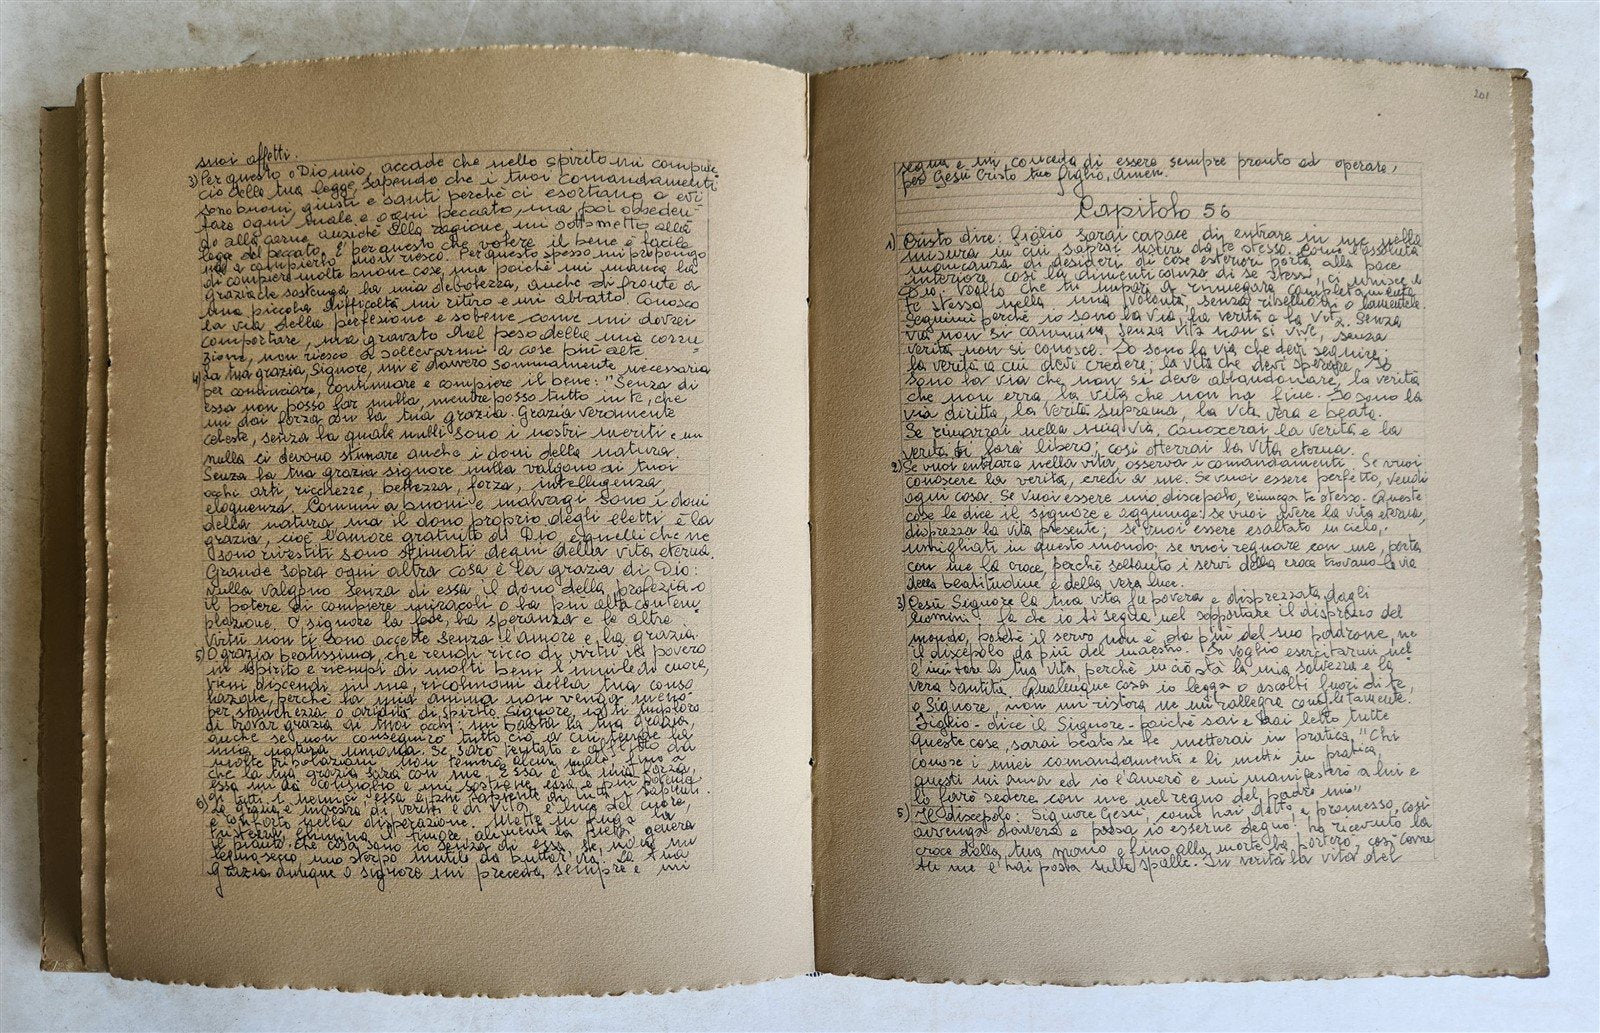 suoi affetti.
3) Per questo o Dio mio, accade che nello spirito mi compiac-
cio della tua legge, sapendo che i tuoi comandamenti
sono buoni, giusti e santi perché ci esortano a evi
tare ogni male e ogni peccato, ma poi obbeden-
do alla carne anziché alla ragione, mi sottometto alla
legge del peccato. E' per questo che volere il bene è facile
ma a compierlo non riesco. Per questo spesso mi propongo
di compiere molte buone cose, ma poiché mi manca la
grazia che sostenga la mia debolezza, anche di fronte a
una piccola difficoltà mi ritiro e mi abbatto. Conosco
la via della perfezione e so bene come mi dovrei
comportare, ma gravato dal peso della mia corru
zione, non riesco a sollevarmi a cose più alte.
4) La tua grazia, Signore, mi è davvero sommamente necessaria
per cominciare, continuare e compiere il bene: "Senza di
essa non posso far nulla, mentre posso tutto in te, che
mi dai forza con la tua grazia. Grazia veramente
celeste, senza la quale nulli sono i nostri meriti e un
nulla ci devono stimare anche i doni della natura.
Senza la tua grazia signore nulla valgono ai tuoi
occhi arti, ricchezze, bellezza, forza, intelligenza,
eloquenza. Comuni a buoni e malvagi sono i doni
della natura ma il dono proprio degli eletti è la
grazia, cioè l'amore gratuito di Dio, e quelli che ne
sono rivestiti sono stimati degni della vita eterna.
Grande sopra ogni altra cosa è la grazia di Dio:
nulla valgono senza di essa il dono della profezia o
il potere di compiere miracoli o la più alta contem
plazione. O signore la fede, la speranza e le altre
virtù non ti sono accette senza l'amore e la grazia.
5) O grazia beatissima, che rendi ricco di virtù il povero
in spirito e riempi di molti beni l'umile di cuore,
vieni discendi in me, ricolmami della tua conso
lazione, perché la mia anima non venga meno
per stanchezza o aridità di spirito. Signore, io ti imploro
di trovar grazia ai tuoi occhi: mi basta la tua grazia,
anche se non conseguirò tutto ciò a cui tende la
mia natura umana. Se sarò tentato e afflitto da
molte tribolazioni non temerò alcun male, fino a
che la tua grazia sarà con me. Essa è la mia forza,
essa mi dà consiglio e mi sostiene, essa è più potente
di tutti i nemici, essa è più sapiente di tutti i sapienti.
6) La grazia è maestra di verità e di vita, è luce del cuore,
è conforto nella disperazione. Mette in fuga la
tristezza, elimina il timore, alimenta la pietà, genera
il pianto. Che cosa sono io senza di essa, se non un
legno secco, uno sterpo inutile da buttar via? La tua
grazia dunque o signore mi preceda sempre e mi
201
segua e mi conceda di essere sempre pronto ad operare,
per Gesù Cristo tuo figlio, amen.
Capitolo 56
1) Cristo dice: figlio sarai capace di entrare in me nella
misura in cui saprai uscire da te stesso. Come l'assoluta
mancanza di desideri di cose esteriori porta alla pace
interiore, così la dimenticanza di se stessi, ci unisce a
Dio. Voglio che tu impari a rinnegare completamente
te stesso nella mia volontà, senza ribellarti o lamentele
seguimi perché io sono la via, la verità e la vita. Senza
via non si cammina, senza vita non si vive, senza
verità non si conosce. Io sono la via che devi seguire;
la verità a cui devi credere; la vita che devi sperare. Io
sono la via che non si deve abbandonare, la verità
che non erra, la vita che non ha fine. Io sono la
via diritta, la verità suprema, la vita vera e beata.
Se rimarrai nella mia via, conoscerai la verità e la
verità ti farà libero; così otterrai la vita eterna.
2) Se vuoi entrare nella vita, osserva i comandamenti. Se vuoi
conoscere la verità, credi a me. Se vuoi essere perfetto, vendi
ogni cosa. Se vuoi essere mio discepolo, rinnega te stesso. Queste
cose le dice il signore e aggiunge: se vuoi avere la vita eterna,
disprezza la vita presente; se vuoi essere esaltato in cielo,
umigliati in questo mondo; se vuoi regnare con me, porta
con me la croce, perché soltanto i servi della croce trovano la via
della beatitudine e della vera luce.
3) Gesù Signore la tua vita fu povera e disprezzata dagli
uomini: fa che io ti segua nel sopportare il disprezzo del
mondo, poiché il servo non è da più del suo padrone, ne
il discepolo da più del maestro. Io voglio esercitarmi nel
l'imitare la tua vita perché in ciò sta la mia salvezza e la
vera santità. Qualunque cosa io legga o ascolti fuori di te,
o Signore, non mi ristora ne mi rallegra completamente.
Figlio - dice il Signore - poiché sai e hai letto tutte
queste cose, sarai beato se le metterai in pratica. "Chi
conosce i miei comandamenti e li mette in pratica,
questi mi ama ed io l'amerò e mi manifesterò a lui e
lo farò sedere con me nel regno del padre mio"
5) Il discepolo: Signore Gesù, come hai detto e promesso, così
avvenga davvero e possa io esserne degno: ho ricevuto la
croce dalla tua mano e fino alla morte la porterò, così come
tu me l'hai posta sulle spalle. In verità la vita del